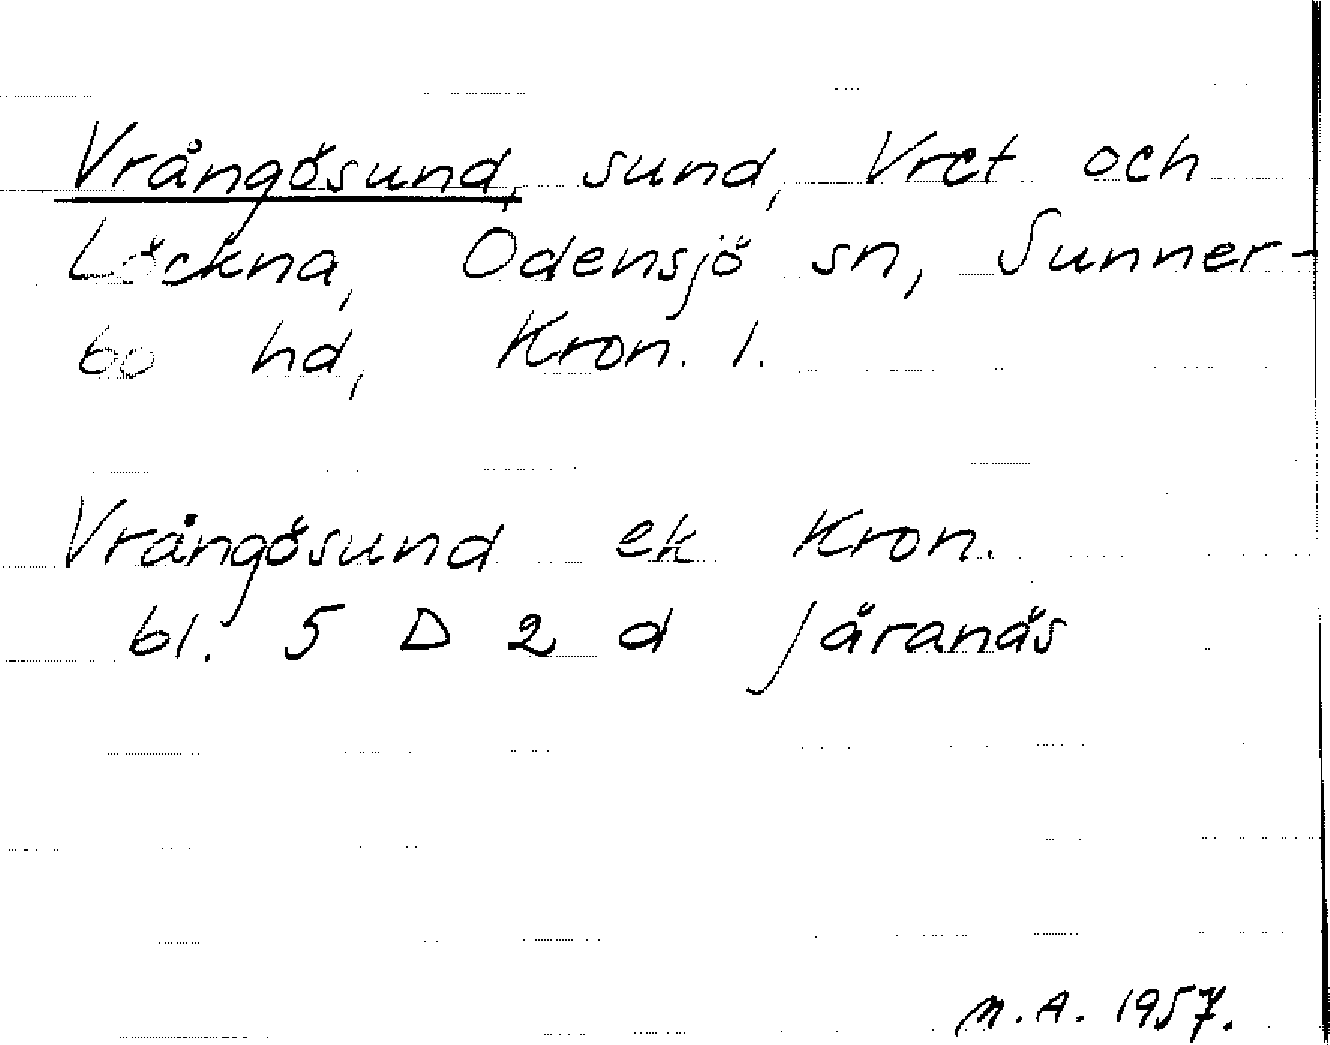 Vrångösund, sund, Vret och
Löckna, Odensjö sn, Sunner-
bo hd, Kron. l.
Vrångösund ek Kron.
bl. 5 D 2 d Järanäs
M.A. 1957.